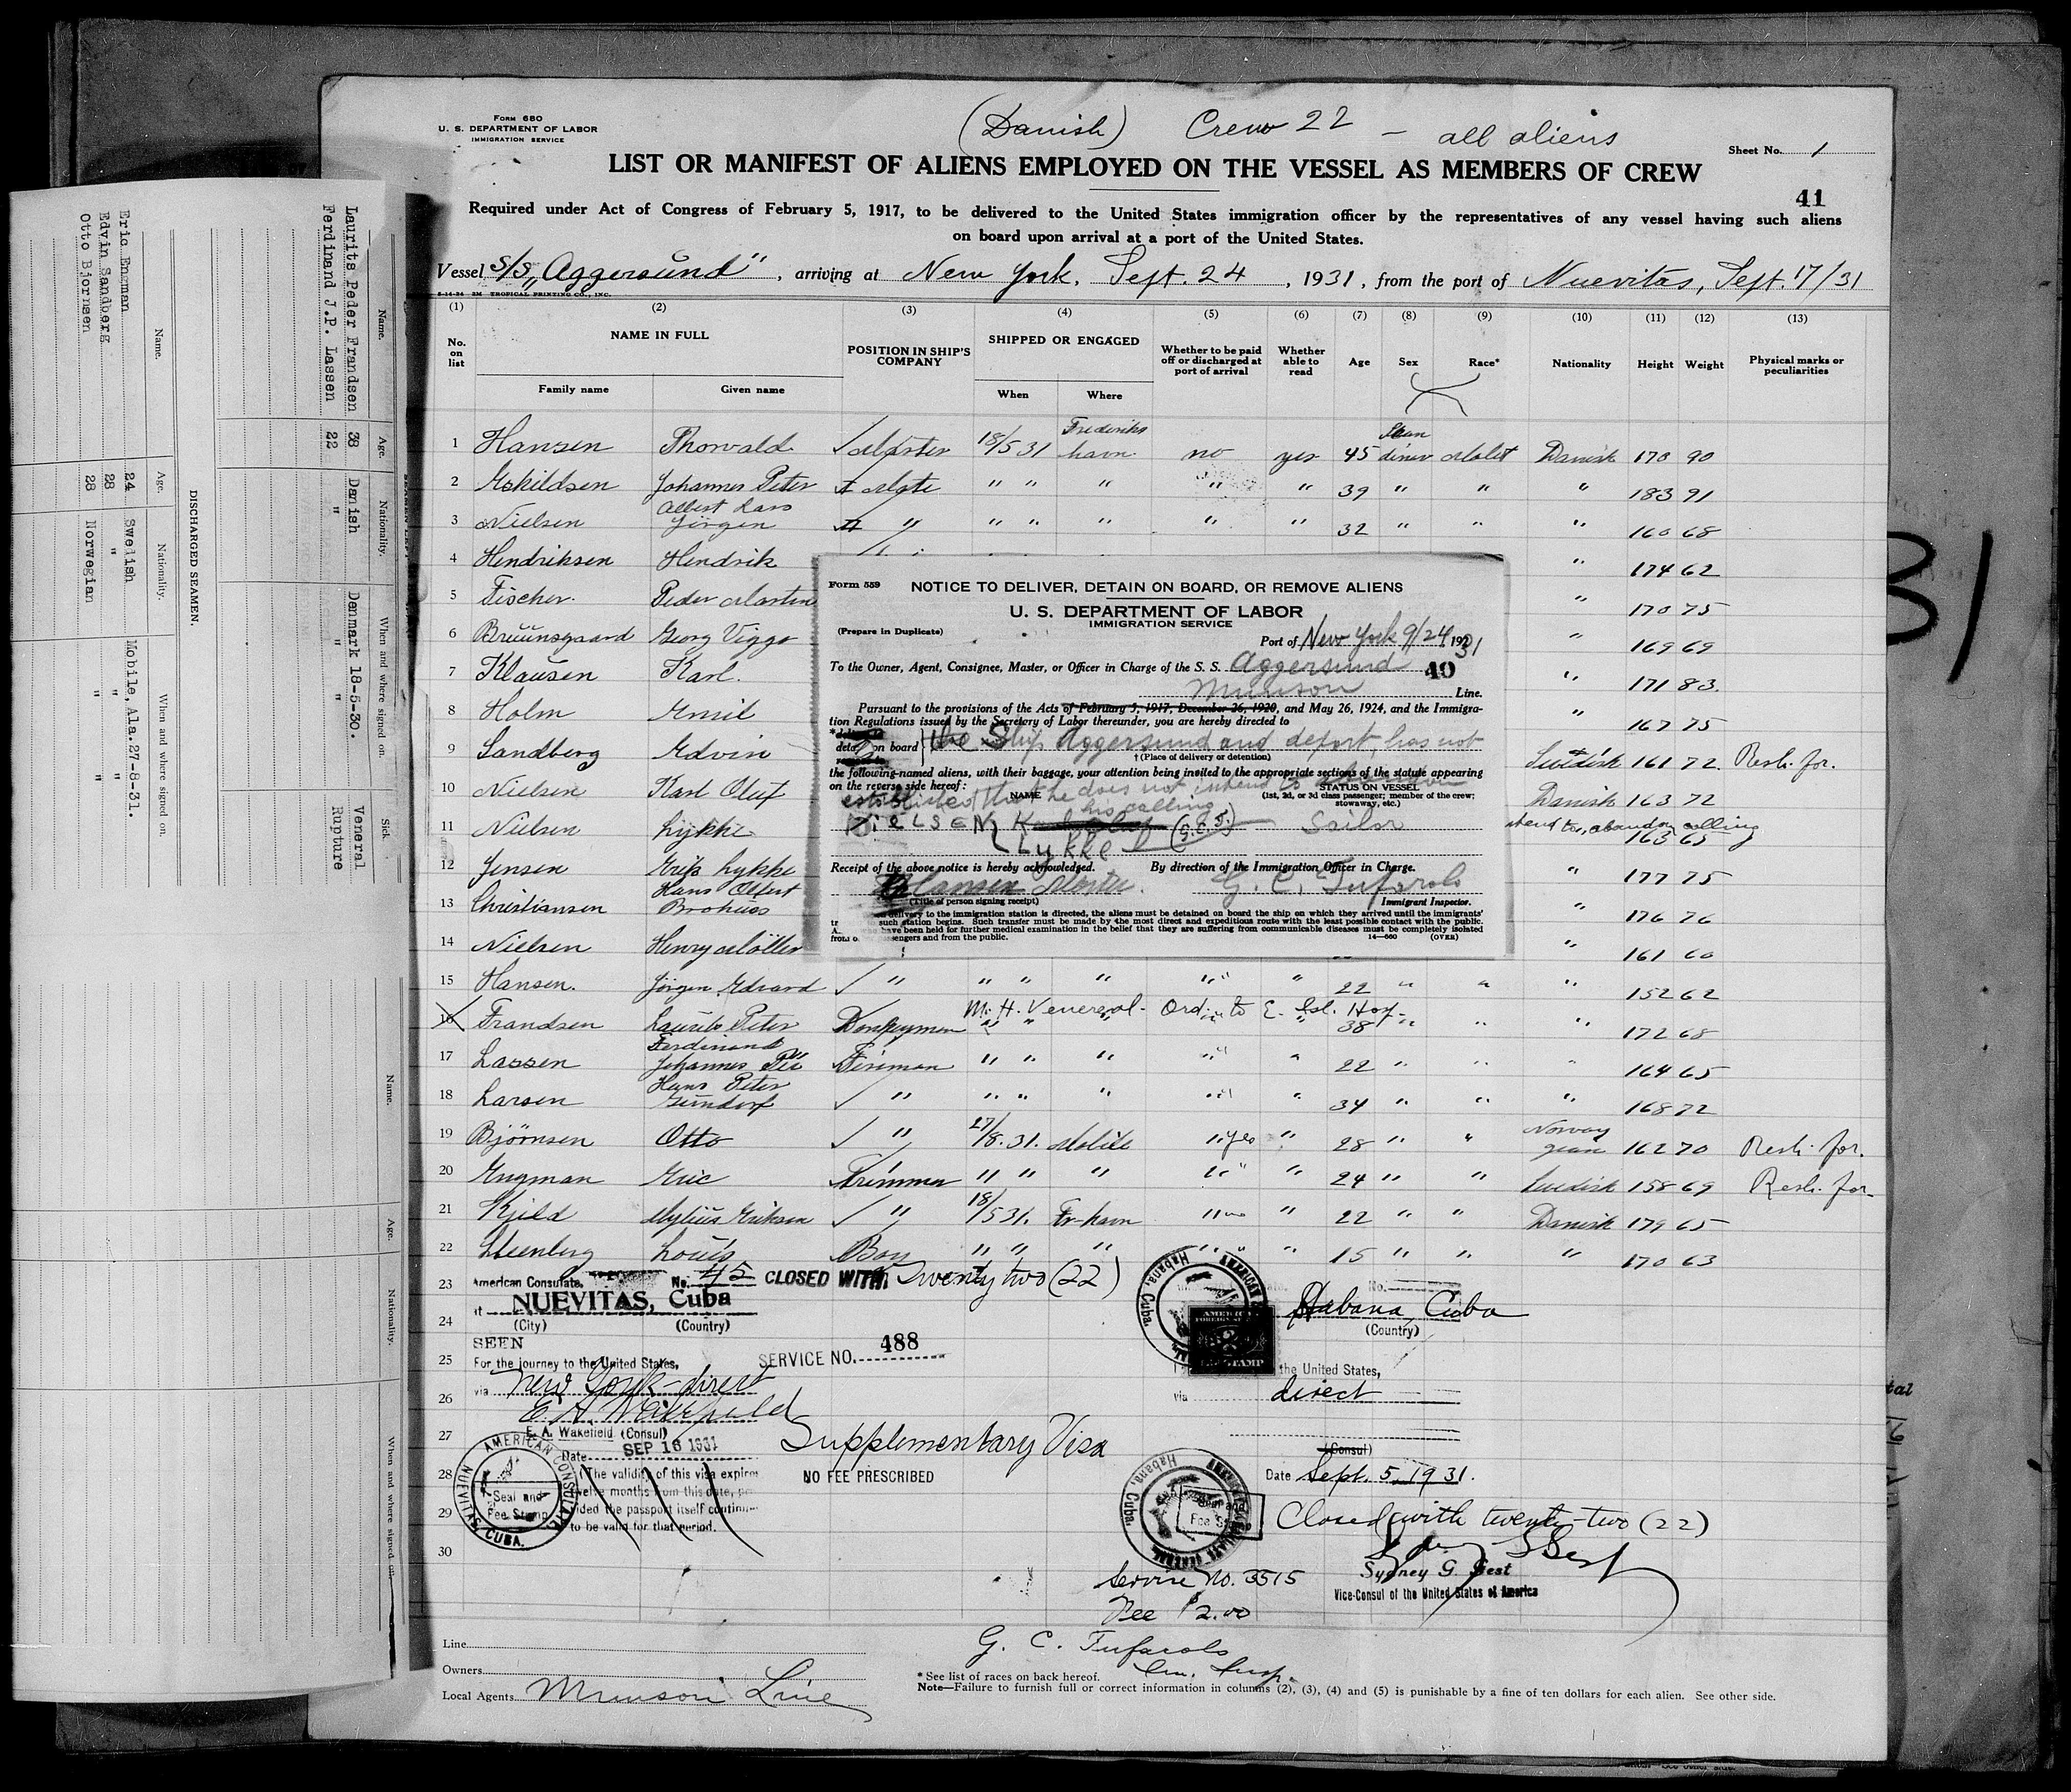 FORM 680
U. S. DEPARTMENT OF LABOR
IMMIGRATION SERVICE
(Danish) Crew 22 - all aliens
Sheet No. 1
LIST OR MANIFEST OF ALIENS EMPLOYED ON THE VESSEL AS MEMBERS OF CREW
41
Required under Act of Congress of February 5, 1917, to be delivered to the United States immigration officer by the representatives of any vessel having such aliens
on board upon arrival at a port of the United States.
Vessel S/S „Aggersund", arriving at New York, Sept. 24, 1931, from the port of Nuevitas, Sept. 17/31
TROPICAL PRINTING CO., INC.
(1) (2) (3) (4) (5) (6) (7) (8) (9) (10) (11) (12) (13)
No. on list
NAME IN FULL
Family name Given name
POSITION IN SHIP'S COMPANY
SHIPPED OR ENGAGED
When Where
Whether to be paid off or discharged at port of arrival
Whether able to read
Age Sex Race* Nationality Height Weight Physical marks or peculiarities
1 Hansen Thorvald Master 18/5 31 Frederikshavn no yes 45 Danish 170 90
2 Eskildsen Johannes Peter I Mate " " " " " 39 " " " 183 91
3 Nielsen Albert Lars Jörgen II " " " " " " 32 " " " 160 68
4 Hendriksen Hendrik " 174 62
5 Fischer Peder Martin " 170 75
6 Bruunsgaard Georg Viggo " 169 69
7 Klausen Karl. " 171 83.
8 Holm Emil " 167 75
9 Sandberg Edvin Swedish 161 72. Resh. for.
10 Nielsen Karl Oluf Danish 163 72
11 Nielsen Lykke abandon calling 163 65
12 Jensen Lykke " 177 75
13 Christiansen Hans Albert " 176 76
14 Nielsen Henry Möller " 161 60
15 Hansen. Jörgen Edvard " " " " " " 22 " " " 152 62
M. H. Venereal - Ord. to E. Isl. Hosp.
16 Frandsen Laurits Peter Donkeyman 38 " " " 172 68
17 Lassen Ferdinand Johannes Fireman " " " " " 22 " " " 164 65
18 Larsen Hans Peter " " " " " " 34 " " " 168 72
19 Björnsen Otto " 27/8. 31. Mobile yes " 28 " " Norwegian 162 70 Resh. for.
20 Engman Eric Trimmer " " " " " 24 " " Swedish 158 69 Resh. for.
21 Kjeld Mylius Eriksen " 18/5 31. Fr-havn no " 22 " " Danish 179 65
22 Steenberg Louis Boy " " " " " 15 " " " 170 63
23
24
25
26
27
28
29
30
Form 559
NOTICE TO DELIVER, DETAIN ON BOARD, OR REMOVE ALIENS
U. S. DEPARTMENT OF LABOR
IMMIGRATION SERVICE
(Prepare in Duplicate)
Port of New York 9/24, 1931
To the Owner, Agent, Consignee, Master, or Officer in Charge of the S. S. Aggersund 40
Munson Line.
Pursuant to the provisions of the Acts of February 5, 1917, December 26, 1920, and May 26, 1924, and the Immigra-
tion Regulations issued by the Secretary of Labor thereunder, you are hereby directed to
detain on board the Ship Aggersund and deport, has not
† (Place of delivery or detention)
the following-named aliens, with their baggage, your attention being invited to the appropriate sections of the statute appearing
on the reverse side hereof:
established that he does not intend to abandon
his calling
NAME STATUS ON VESSEL
(1st, 2d, or 3d class passenger; member of the crew; stowaway, etc.)
NIELSEN, Karl Oluf (G.C.T.) Sailor
Lykke
Receipt of the above notice is hereby acknowledged. By direction of the Immigration Officer in Charge.
Hansen Master. G. C. Tufarolo
(Title of person signing receipt) Immigrant Inspector.
delivery to the immigration station is directed, the aliens must be detained on board the ship on which they arrived until the immigrants'
such station begins. Such transfer must be made by the most direct and expeditious route with the least possible contact with the public.
have been held for further medical examination in the belief that they are suffering from communicable diseases must be completely isolated
14—660 (OVER)
American Consulate, No. 45 CLOSED WITH Twenty two (22)
at NUEVITAS, Cuba
(City) (Country)
SEEN
For the journey to the United States,
via New York - direct
E. A. Wakefield
E. A. Wakefield (Consul)
Date SEP 16 1931
(The validity of this visa expires
twelve months from this date, pro-
vided the passport itself continues
to be valid for that period.
AMERICAN CONSULATE, NUEVITAS, CUBA.
Seal and Fee Stamp
SERVICE NO. 488
Supplementary Visa
NO FEE PRESCRIBED
No.
Habana, Cuba
(Country)
the United States,
via direct
(Consul)
Date Sept. 5, 1931.
Closed with twenty-two (22)
Sydney G. Gest
Vice-Consul of the United States of America
Service No. 3515
Fee $2.00
Habana, Cuba.
Line
Owners
Local Agents Munson Line
G. C. Tufarolo
Im. Insp.
* See list of races on back hereof.
Note—Failure to furnish full or correct information in columns (2), (3), (4) and (5) is punishable by a fine of ten dollars for each alien. See other side.
Name. Age. Nationality. When and where signed on. Sick.
Laurits Peder Frandsen 38 Danish Denmark 18-5-30. Veneral
Ferdinand J.P. Lassen 22 " " " Rupture
DISCHARGED SEAMEN.
Name. Age. Nationality. When and where signed on.
Eric Engman 24 Swelish Mobile, Ala. 27-8-31.
Edvin Sandberg 28 " " "
Otto Bjornsen 28 Norwegian " "
Name. Age. Nationality. When and where signed on
31